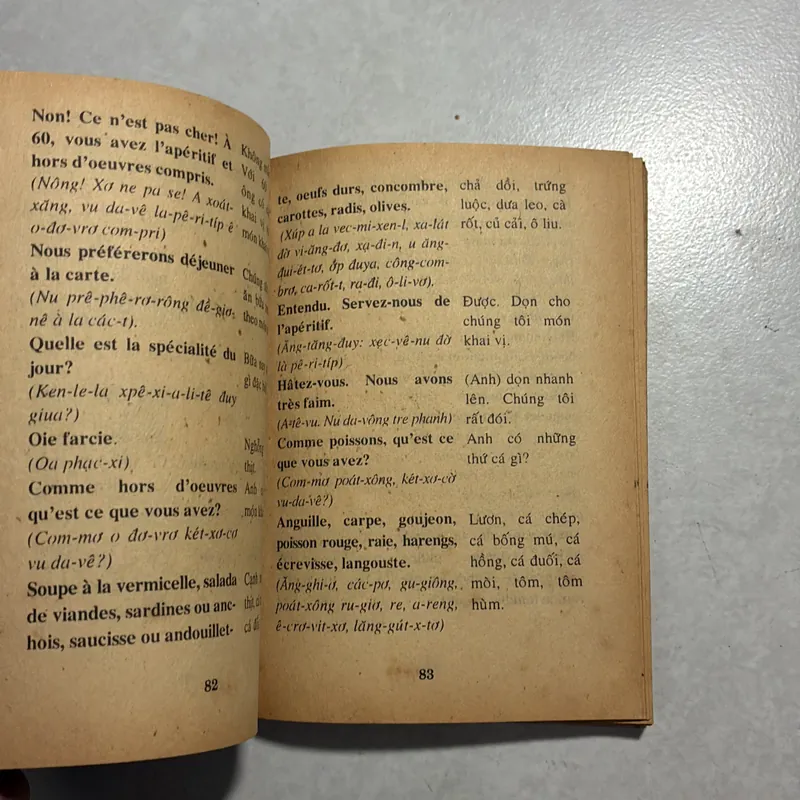 Non! Ce n'est pas cher! À
60, vous avez l'apéritif et
hors d'oeuvres compris.
(Nông! Xơ ne pa se! A xoát-
xăng, vu da-vê la-pê-ri-típ ê
o-đơ-vrơ com-pri)
Nous préférerons déjeuner
à la carte.
(Nu prê-phê-rơ-rông đê-giơ-
nê à la các-t).
Quelle est la spécialité du
jour?
(Ken-le-la xpê-xi-a-li-tê đuy
giua?)
Oie farcie.
(Oa phạc-xi)
Comme hors d'oeuvres
qu'est ce que vous avez?
(Com-mơ o đơ-vrơ két-xơ-cơ
vu da-vê?)
Soupe à la vermicelle, salada
de viandes, sardines ou anc-
hois, saucisse ou andouillet-
Không
Với 60
ông có
khai vị
món
Chúng
ăn
theo
Bữa
gì đặc
thịt.
Anh
món
Canh
thịt,
cá
82
te, oeufs durs, concombre,
carottes, radis, olives.
(Xúp a la vec-mi-xen-l, xa-lát
đờ vi-ăng-đơ, xạ-đi-n, u ăng-
đui-ét-tơ, ớp đuya, công-com-
brơ, ca-rốt-t, ra-đi, ô-li-vơ).
Entendu. Servez-nous de
l'apéritif.
(Ăng-tăng-đuy: xẹc-vê-nu đờ
là pê-ri-típ)
Hâtez-vous. Nous avons
très faim.
(A-tê-vu. Nu da-vông tre phanh)
Comme poissons, qu'est ce
que vous avez?
(Com-mơ poát-xông, két-xơ-cờ
vu-da-vê?)
Anguille, carpe, goujeon,
poisson rouge, raie, harengs,
écrevisse, langouste.
(Ăng-ghi-ơ, các-pơ, gu-giông,
poát-xông ru-giơ, re, a-reng,
ê-crơ-vít-xơ, lăng-gút-x-tơ)
chả dồi, trứng
luộc, dưa leo, cà
rốt, củ cải, ô liu.
Được. Dọn cho
chúng tôi món
khai vị.
(Anh) dọn nhanh
lên. Chúng tôi
rất đói.
Anh có những
thứ cá gì?
Lươn, cá chép,
cá bống mú, cá
hồng, cá đuối, cá
mòi, tôm, tôm
hùm.
83